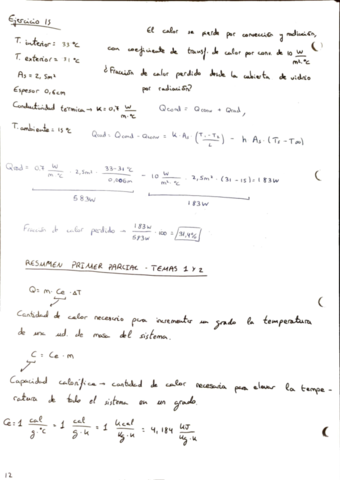 Ejercicio 15
El calor se pierde por convección y radiación,
T. interior = 33 ºC
con coeficiente de transf. de calor por conv. de 10 W/m²·ºC
T. exterior = 31 ºC
¿Fracción de calor perdido desde la cubierta de vidrio
As = 2,5m²
por radiación?
Espesor 0,6cm
Conductividad térmica → K = 0,7 W/m·ºC
Qcond = Qconv + Qrad,
T. ambiente = 15 ºC
Qrad = Qcond - Qconv = k·As·(T1-T2/L) - h·As·(Ts-T∞)
Qrad = 0,7 W/m·ºC · 2,5m² · 33-31ºC/0,006m - 10 W/m²·ºC · 2,5m² · (31-15) = 183W
583W
183W
Fracción de calor perdido → 183W/583W · 100 = 31,4%
RESUMEN PRIMER PARCIAL - TEMAS 1 Y 2
Q = m · Ce · ΔT
Cantidad de calor necesario para incrementar un grado la temperatura
de una ud. de masa del sistema.
C = Ce · m
Capacidad calorífica → cantidad de calor necesaria para elevar la tempe-
ratura de todo el sistema en un grado.
Ce = 1 cal/g·ºC = 1 cal/g·K = 1 kcal/kg·K = 4,184 KJ/Kg·K
12